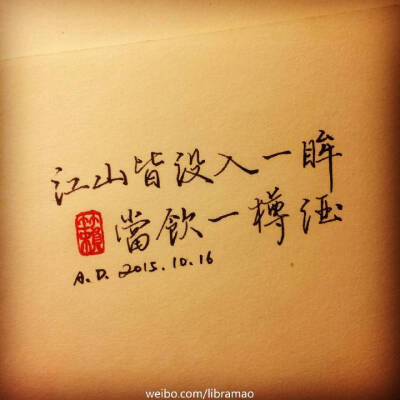 江山皆没入一眸
當飲一樽酒
A.D. 2015.10.16
weibo.com/libramao